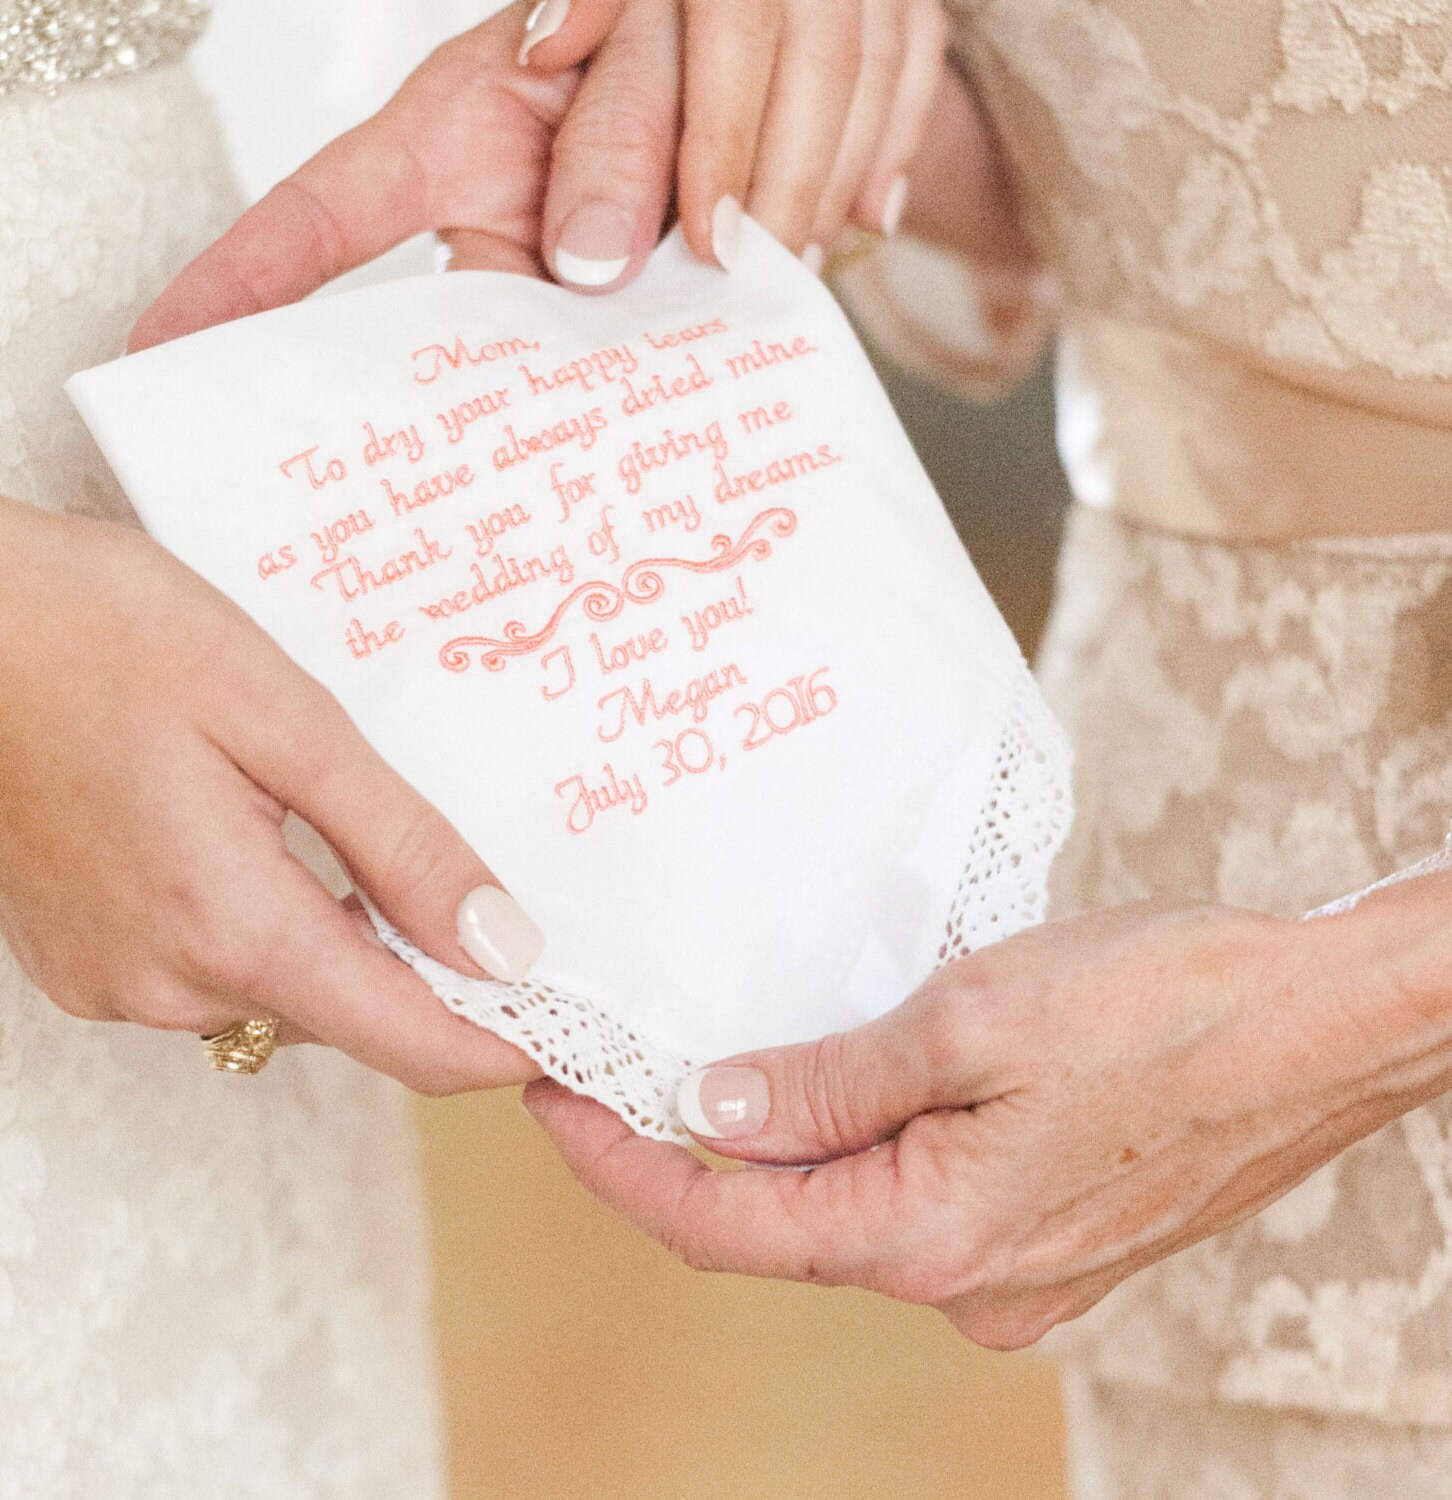 Mom,
To dry your happy tears
as you have always dried mine.
Thank you for giving me
the wedding of my dreams.
I love you!
Megan
July 30, 2016